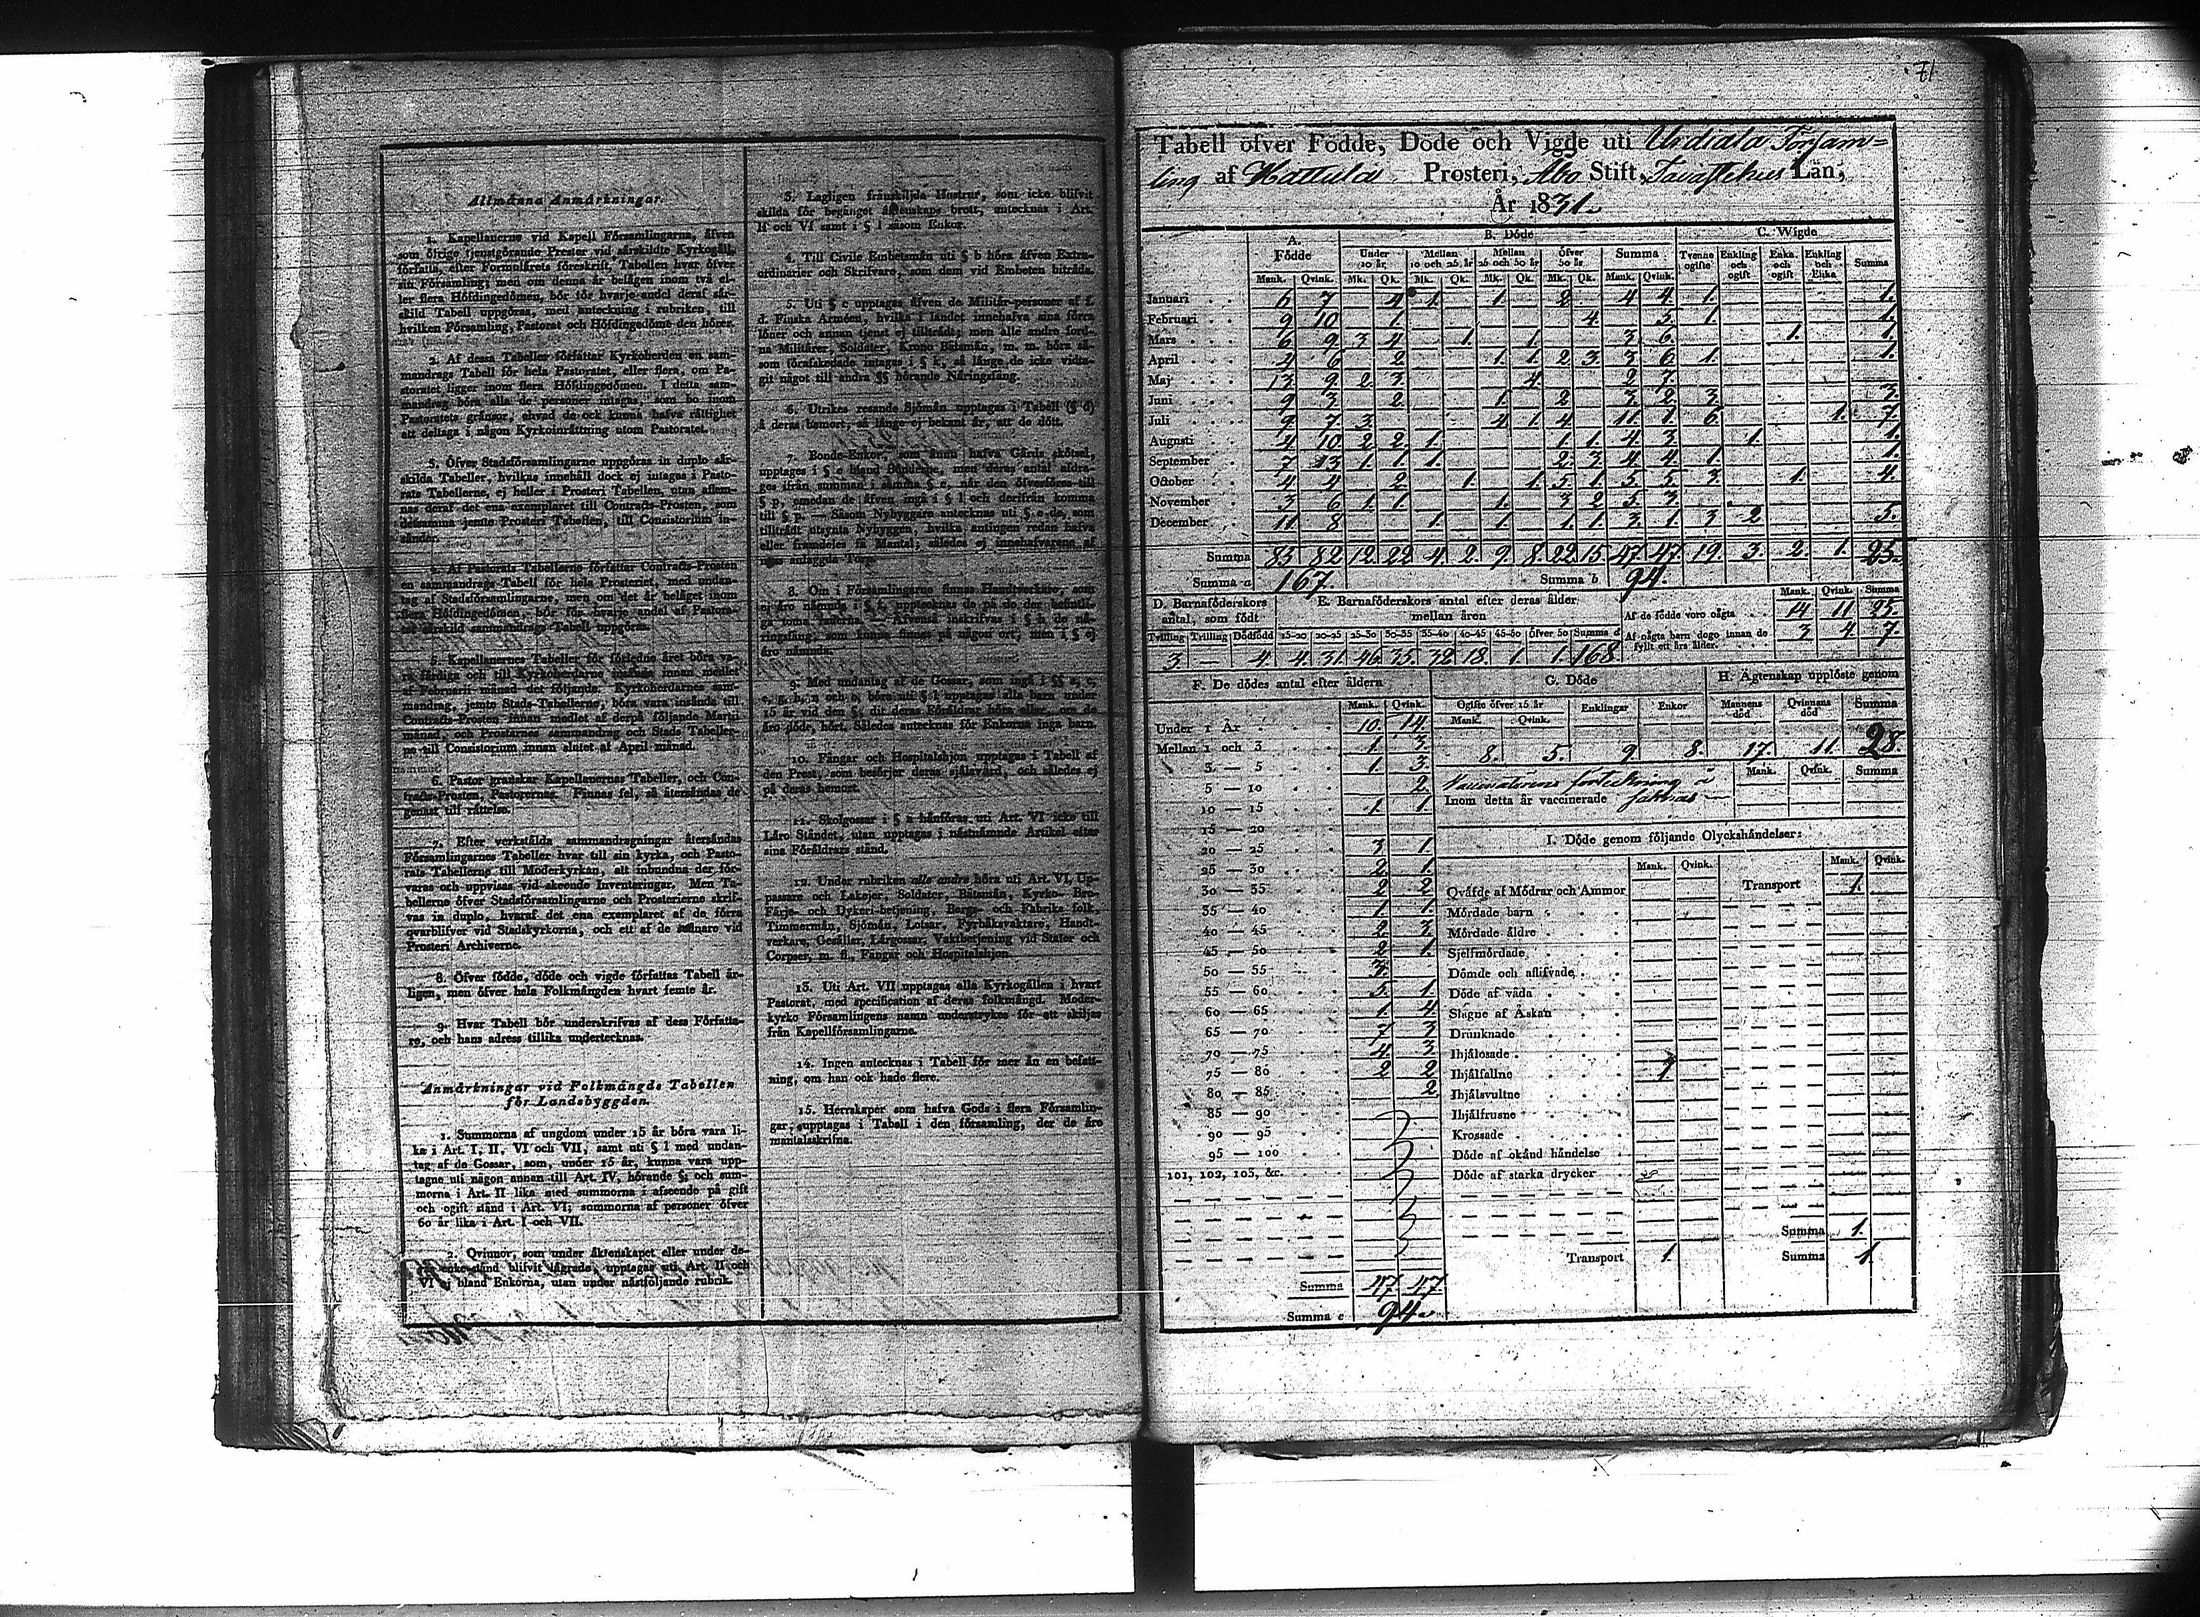 Allmänna Anmärkningar.
1. Kapellanerne vid Kapell Församlingarna, äfven
som öfrige tjenstgörande Prester vid särskildte Kyrkogäll,
författa, efter Formulärets föreskrift, Tabellen hvar öfver
sin Församling; men om denna är belägen inom två el-
ler flera Höfdingedömen, bör för hvarje andel deraf sär-
skild Tabell uppgöras, med anteckning i rubriken, till
hvilken Församling, Pastorat och Höfdingedöme den hörer.
2. Af dessa Tabeller författar Kyrkoherden en sam-
mandrags Tabell för hela Pastoratet, eller flera, om Pa-
storatet ligger inom flera Höfdingedömen. I detta sam-
mandrag böra alla de personer intagas, som bo inom
Pastoratets gränsor, ehvad de ock kunna hafva rättighet
att deltaga i någon Kyrkoinrättning utom Pastoratet.
3. Öfver Stadsförsamlingarne uppgöras in duplo sär-
skilda Tabeller, hvilkas innehåll dock ej intagas i Pasto-
rats Tabellerne, ej heller i Prosteri Tabellen, utan aflem-
nas deraf det ena exemplaret till Contracts-Prosten, som
detsamma jemte Prosteri Tabellen, till Consistorium in-
sänder.
4. Af Pastorats Tabellerne författar Contracts-Prosten
en sammandrags Tabell för hela Prosteriet, med undan-
tag af Stadsförsamlingarne, men om det är beläget inom
flera Höfdingedömen, bör för hvarje andel af Pastora-
tet särskild sammandrags Tabell uppgöras.
5. Kapellanernes Tabeller för förledne året böra va-
ra färdiga och till Kyrkoherdarne insände innan medlet
af Februarii månad det följande. Kyrkoherdarnes sam-
mandrag, jemte Stads-Tabellerne, böra vara insända till
Contracts-Prosten innan medlet af derpå följande Martii
månad, och Prostarnes sammandrag och Stads Tabeller-
ne till Consistorium innan slutet af April månad.
6. Pastor granskar Kapellanernas Tabeller, och Con-
tracts-Prosten, Pastorernas. Finnas fel, så återsändas de
genast till rättelse.
7. Efter verkställda sammandragningar återsändas
Församlingarnes Tabeller hvar till sin kyrka, och Pasto-
rats Tabellerne till Moderkyrkan, att inbundna der för-
varas och uppvisas vid skeende Inventeringar. Men Ta-
bellerne öfver Stadsförsamlingarne och Prosterierne skrif-
vas in duplo, hvaraf det ena exemplaret af de förra
qvarblifver vid Stadskyrkorna, och ett af de senare vid
Prosteri Archiverne.
8. Öfver födde, döde och vigde författas Tabell år-
ligen, men öfver hela Folkmängden hvart femte år.
9. Hvar Tabell bör underskrifvas af dess Författa-
re, och hans adress tillika undertecknas.
Anmärkningar vid Folkmängds Tabellen
för Landsbyggden.
1. Summorna af ungdom under 15 år böra vara li-
ka i Art. I, II, VI och VII, samt uti § l med undan-
tag af de Gossar, som, under 15 år, kunna vara upp-
tagne uti någon annan till Art. IV, hörande §; och sum-
morna i Art. II lika med summorna i afseende på gift
och ogift stånd i Art. VI; summorna af personer öfver
60 år lika i Art. I och VII.
2. Qvinnor, som under äktenskapet eller under de-
enkestånd blifvit lägrade, upptagas uti Art. II och
VI bland Enkorna, utan under nästföljande rubrik.
3. Lagligen frånskiljda Hustrur, som icke blifvit
skilda för begånget äktenskaps brott, antecknas i Art.
II och VI samt i § l såsom Enkor.
4. Till Civile Embetsmän uti § b höra äfven Extra-
ordinarier och Skrifvare, som dem vid Embeten biträda.
5. Uti § c upptagas äfven de Militär-personer af f.
d. Finska Arméen, hvilka i landet innehafva sina förra
löner och annan tjenst ej tillträdt; men alla andra ford-
na Militärer, Soldater, Krono Båtsmän, m. m. böra så-
som förafskedade, intagas i § k, så länge de icke vidta-
git något till andra §§ hörande Näringsfång.
6. Utrikes resande Sjömän upptagas i Tabell (§ d)
å deras hemort, så länge ej bekant är, att de dött.
7. Bonde-Enkor, som ännu hafva Gårds skötsel,
upptages i § e bland Bönderne, men deras antal afdra-
ges ifrån summan i samma § e, när den öfverföres till
§ p, emedan de äfven ingå i § l och derifrån komma
till § p. — Såsom Nybyggare antecknas uti § e de, som
tillträdt utsynta Nybyggen, hvilka antingen redan hafva
eller framdeles få Mantal; således ej innehafvarena af
egne anlaggda Torp.
8. Om i Församlingarne finnas Handtverkare, som
ej äro nämnde i § f, upptecknas de på de der befintli-
ga toma raderna. — Äfvenså inskrifvas i § h de nä-
ringsfång, som kunna finnas på någon ort; men i § ej
äro nämnda.
9. Med undantag af de Gossar, som ingå i §§ a, c,
e, g, h, n och o, böra uti § l upptagas alla barn under
15 år vid den §, dit deras Föräldrar höra eller, om de
äro döde, hört. Således antecknas för Enkorna inga barn.
10. Fångar och Hospitalshjon upptagas i Tabell af
den Prest, som besörjer deras själavård, och således ej
på deras hemort.
11. Skolgossar i § a hänföras uti Art. VI icke till
Läro Ståndet, utan upptagas i nästnämnde Artikel efter
sina Föräldrars stånd.
12. Under rubriken alla andre höra uti Art. VI, Up-
passare och Lakejer, Soldater, Båtsmän, Kyrko- Bro-
Färje- och Dykeri-betjening, Bergs- och Fabriks-folk,
Timmermän, Sjömän, Lotsar, Fyrbåksvaktare, Handt-
verkare, Gesäller, Lärgossar, Vaktbetjening vid Stater och
Corpser, m. fl., Fångar och Hospitalshjon.
13. Uti Art. VII upptagas alla Kyrkogällen i hvart
Pastorat, med specification af deras folkmängd. Moder-
kyrko Församlingens namn understrykes för att skiljas
från Kapellförsamlingarne.
14. Ingen antecknas i Tabell för mer än en befatt-
ning, om han ock hade flere.
15. Herrskaper som hafva Gods i flera Församlin-
gar, upptagas i Tabell i den församling, der de äro
mantalsskrifna.
71
Tabell öfver Födde, Döde och Vigde uti Urdiala Församl=
ling af Hattula Prosteri, Åbo Stift, Tavastehus Län,
År 1831.
A. Födde B. Döde C. Wigde
Under 10 år, Mellan 10 och 25 år Mellan 25 och 50 år Öfver 50 år Summa Tvenne ogifte Enkling och ogift Enka och ogift Enkling och Enka Summa
Mank. Qvink. Mk. Qk. Mk. Qk. Mk. Qk. Mk. Qk. Mank. Qvink.
Januari 6 7 4 1. 1. 2 4 4. 1. 1.
Februari 9 10 1. 4. 5. 1. 1.
Mars 6 9 3 4 1. 1. 3 6. 1. 1.
April 4 6 2 1. 1 2 3 3 6 1. 1.
Maj 13 9 2. 3. 4. 2 7.
Juni 9 3 2 1. 2 3. 2. 3. 3.
Juli 9 7 3. 4. 1. 4 11. 1 6. 1. 7.
Augusti 4 10 2 2 1. 1. 1. 4 3 1. 1.
September 7 13 1. 1. 1. 2. 3 4. 4 1. 1.
October 4 4 2 1. 1. 5 1. 5 5 3. 1. 4.
November 3 6 1. 1. 1. 3 2 5 3.
December 11 8 1. 1. 1. 1. 3. 1. 3 2 5.
Summa 85 82 12. 22 4. 2. 9. 8. 22 15 47. 47. 19. 3. 2. 1. 25.
Summa a 167. Summa b 94.
D. Barnaföderskors antal, som födt
E. Barnaföderskors antal efter deras ålder mellan åren
Mank. Qvink. Summa
Af de födde voro oägta 14 11 25.
Af oägta barn dogo innan de fyllt ett års ålder. 3 4. 7.
Tvilling Trilling Dödfödd 15-20 20-25 25-30 30-35 35-40 40-45 45-50 Öfver 50 Summa d
3 — 4. 4. 31. 46. 35. 32 18. 1. 1. 168.
F. De dödes antal efter åldern
Mank. Qvink.
Under 1 År 10. 14.
Mellan 1 och 3 1. 3.
3 — 5 1. 3.
5 — 10 2.
10 — 15 1. 1.
15 — 20
20 — 25 3 1.
25 — 30 2. 1.
30 — 35 2 2
35 — 40 1. 1.
40 — 45 2. 3.
45 — 50 2 1.
50 — 55 3.
55 — 60 5. 1.
60 — 65 1. 4.
65 — 70 7 3
70 — 75 4. 3.
75 — 80 2 2
80 — 85 2.
85 — 90
90 — 95
95 — 100
101, 102, 103, &c.
Summa 47. 47.
Summa e 94.
G. Döde
Ogifte öfver 15 år Enklingar Enkor
Mank. Qvink.
8. 5. 9 8.
H. Ägtenskap upplöste genom
Mannens död Qvinnans död Summa
17. 11. 28
Vaccinateurens förteckning
Inom detta år vaccinerade saknas —
Mank. Qvink. Summa
I. Döde genom följande Olyckshändelser:
Mank. Qvink.
Qväfde af Mödrar och Ammor
Mördade barn
Mördade äldre
Sjelfmördade
Dömde och aflifvade
Döde af våda
Slagne af Åskan
Drunknade
Ihjälosade
Ihjälfallne 1
Ihjälsvultne
Ihjälfrusne
Krossade
Döde af okänd händelse
Döde af starka drycker
Transport 1
Mank. Qvink.
Transport 1.
Summa 1.
Summa 1.